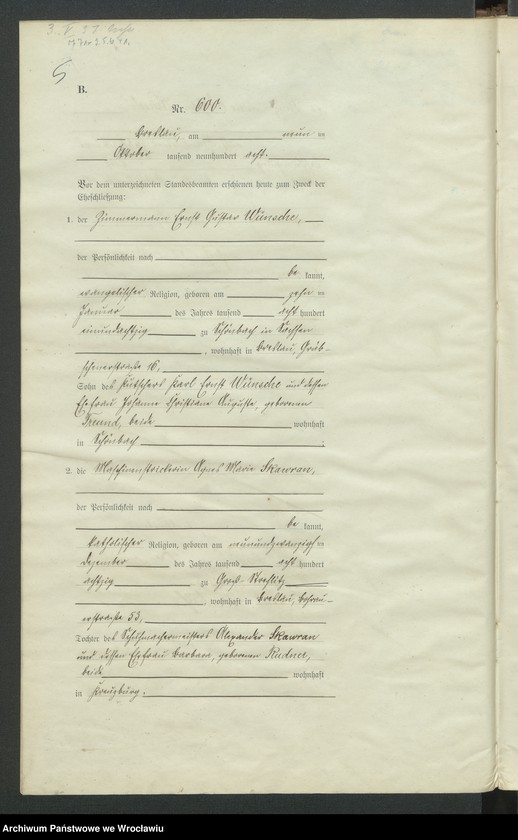 5
B.
Nr. 600.
Breslau, am neun ten
Oktober tausend neunhundert acht.
Vor dem unterzeichneten Standesbeamten erschienen heute zum Zweck der
Eheschließung:
1. der Zimmermann Ernst Gustav Wünsche,
der Persönlichkeit nach
be kannt,
evangelischer Religion, geboren am zehn ten
Januar des Jahres tausend acht hundert
einundachtzig zu Schönbach in Sachsen
, wohnhaft in Breslau, Gräb-
schenerstraße 16,
Sohn des Kutschers Karl Ernst Wünsche und dessen
Ehefrau Johanne Christiane Auguste, geborenen
Freund, beide wohnhaft
in Schönbach ;
2. die Maschinenstrickerin Agnes Marie Skawran,
der Persönlichkeit nach
be kannt,
katholischer Religion, geboren am neunundzwanzigs ten
Dezember des Jahres tausend acht hundert
achtzig zu Groß-Strehlitz
, wohnhaft in Breslau, Bohrau-
erstraße 53,
Tochter des Schuhmachermeisters Alexander Skawran
und dessen Ehefrau Barbara, geborenen
beide wohnhaft
in Kreuzburg.
Archiwum Państwowe we Wrocławiu